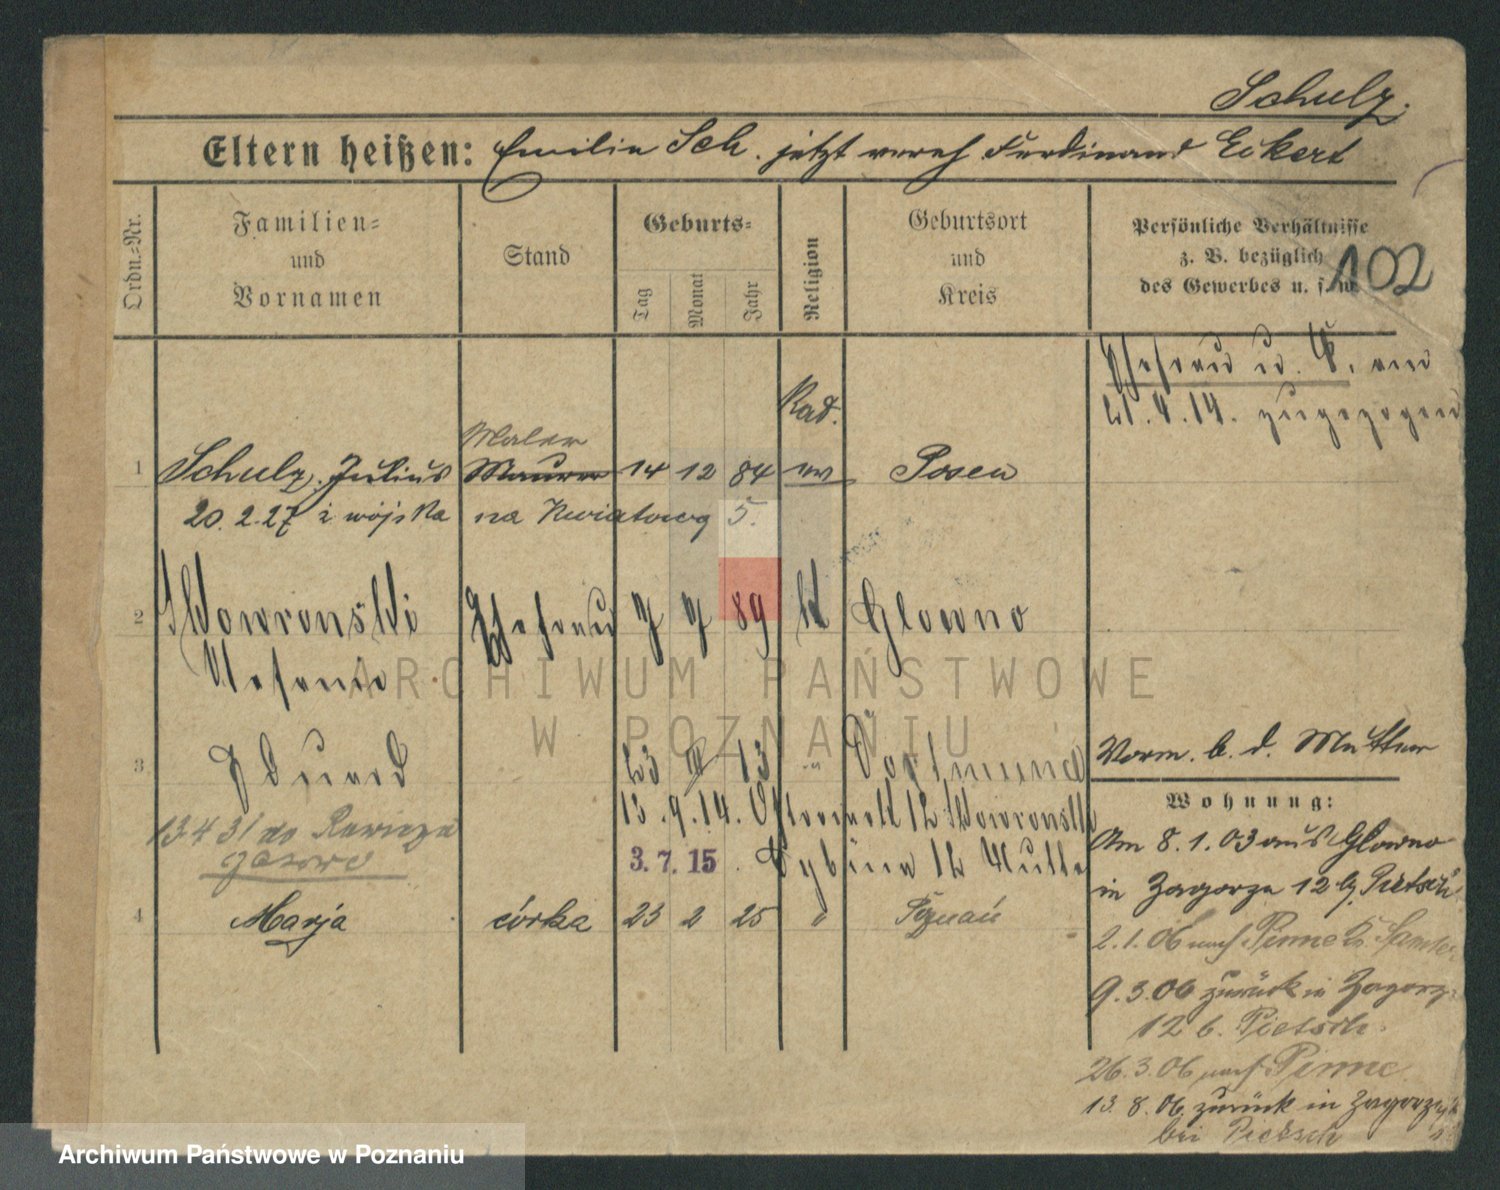 Schulz.
Eltern heißen: Emilie Sch. jetzt vereh Ferdinand Eckert
Ordn.-Nr.
Familien-
und
Vornamen
Stand
Geburts-
Tag
Monat
Jahr
Religion
Geburtsort
und
Kreis
Persönliche Verhältnisse
z. B. bezüglich
des Gewerbes u. s. w.
102
Ehefrau u. K. am
21.4.14. zugezogen
Kad.
Maler
1 Schulz, Julius Maurer 14 12 84 ev Posen
20.2.27 z wojska na Kwiatową 5.
2 Nowronski Ehefrau 7 7 89 k Glowno
Stefanie
3 Eduard 23 13 " Dortmund
Vorm. b. d. Mutter
Wohnung:
13.9.14. 12 Nowronski
13 4 31 do Rawicza
3.7.15. 12
4 Marja córka 23 2 25 " Poznań
Am 8.1.03 aus Glowno
in Zagorze 12 b/ Pietsch
2.1.06 nach Pinne Kr. Samter
9.3.06 zurück in Zagorze
12 b. Pietsch.
26.3.06 nach Pinne.
13.8.06. zurück in Zagorze
bei Pietsch
ARCHIWUM PAŃSTWOWE
W POZNANIU
Archiwum Państwowe w Poznaniu